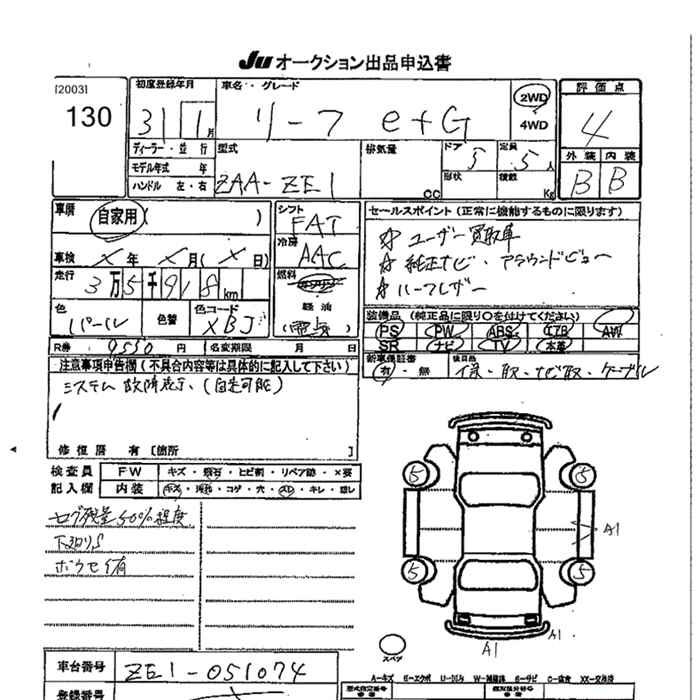 Ju オークション出品申込書
[2003]
130
初度登録年月
31 1月
車名・グレード
リーフ e+G
2WD
4WD
評価点
4
外装 内装
B B
ディーラー・並行
モデル年式 年
ハンドル 左・右
型式
ZAA-ZE1
排気量
cc
ドア 5
形状
定員 5人
積載 Kg
車歴 自家用( )
車検 × 年 × 月( × 日)
走行 3万5千918km
色 パール
色替
色コード XBJ
シフト FAT
冷房 AAC
燃料
軽油
(電気)
セールスポイント(正常に機能するものに限ります)
☆ ユーザー買取車
☆ 純正ナビ、アラウンドビュー
☆ ハーフレザー
装備品(純正品に限り○を付けてください)
PS PW ABS エアB AW
SR ナビ TV 本革
R券 9550円 名変期限 月 日
新車保証書
有・無
後日品
注意事項申告欄(不具合内容等は具体的に記入して下さい)
システム故障表示、(自走可能)
修復歴 有[箇所 ]
検査員
記入欄
FW キズ・飛石・ヒビ割・リペア跡・×要
内装 キズ・汚れ・コゲ・穴・スレ・キレ・劣レ
セグ残量50%程度
下廻りS
ホウセイ有
5 5
5 5
A1
A1 A1
スペア
車台番号 ZE1-051074
登録番号
A-キズ E-エクボ U-凹ミ W-補修跡 S-サビ C-腐食 XX-交換済
型式指定番号 類別区分番号